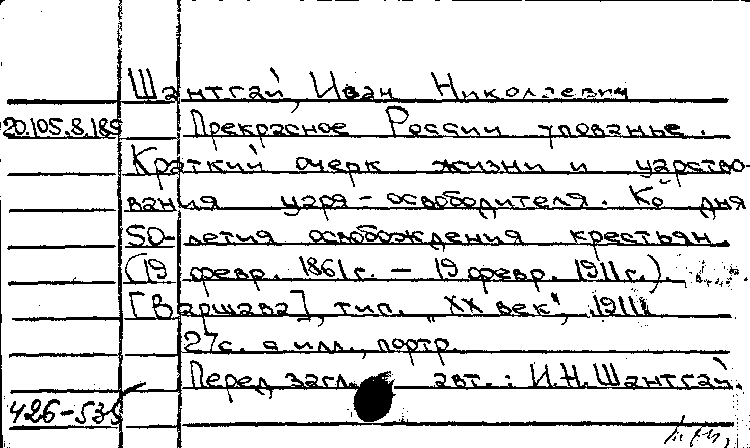 Шантгай, Иван Николаевич
20.105.8.189 Прекрасное России упованье.
Краткий очерк жизни и царство-
вания царя-освободителя. Ко дня
50-летия освобождения крестьян.
(19 февр. 1861 г. — 19 февр. 1911 г.).
[Варшава], тип. "XX век", 1911
27 с. с илл., портр.
Перед загл. авт.: И.Н. Шантгай.
426-535